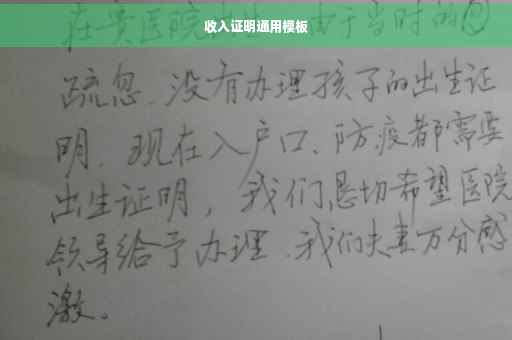 收入证明通用模板
在贵医院出生,由于当时的
疏忽、没有办理孩子的出生证
明、现在入户口、防疫都需要
出生证明,我们恳切希望医院
领导给予办理、我们夫妻万分感
激。